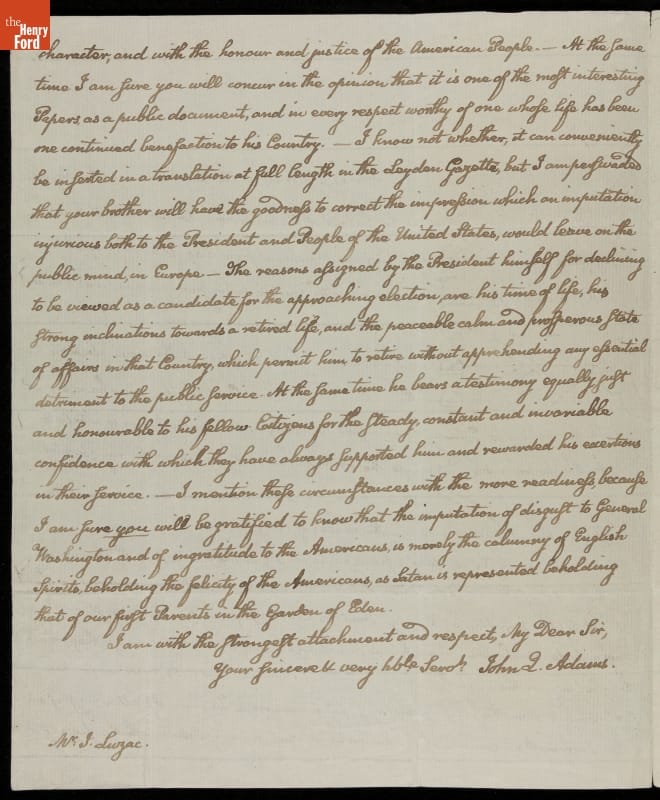 the
Henry
Ford
character, and with the honour and justice of the American People. — At the same
time I am sure you will concur in the opinion that it is one of the most interesting
Papers, as a public document, and in every respect worthy of one whose life has been
one continued benefaction to his Country. — I know not whether, it can conveniently
be inserted in a translation at full length in the Leyden Gazette, but I am perswaded
that your brother will have the goodness to correct the impression which an imputation
injurious both to the President and People of the United States, would leave on the
public mind, in Europe — The reasons assigned by the President himself for declining
to be viewed as a candidate for the approaching election, are his time of life, his
strong inclinations towards a retired life, and the peaceable calm and prosperous state
of affairs in that Country, which permit him to retire without apprehending any essential
detriment to the public service. At the same time he bears a testimony equally just
and honourable to his fellow Citizens for the steady, constant and invariable
confidence with which they have always supported him and rewarded his exertions
in their service. — I mention these circumstances with the more readiness, because
I am sure you will be gratified to know that the imputation of disgust to General
Washington and of ingratitude to the Americans, is merely the calumny of English
spirits, beholding the felicity of the Americans, as Satan is represented beholding
that of our first Parents in the Garden of Eden.
I am with the strongest attachment and respect, My Dear Sir,
Your sincere & very hble Servt. John Q. Adams.
Mr. J. Luzac.